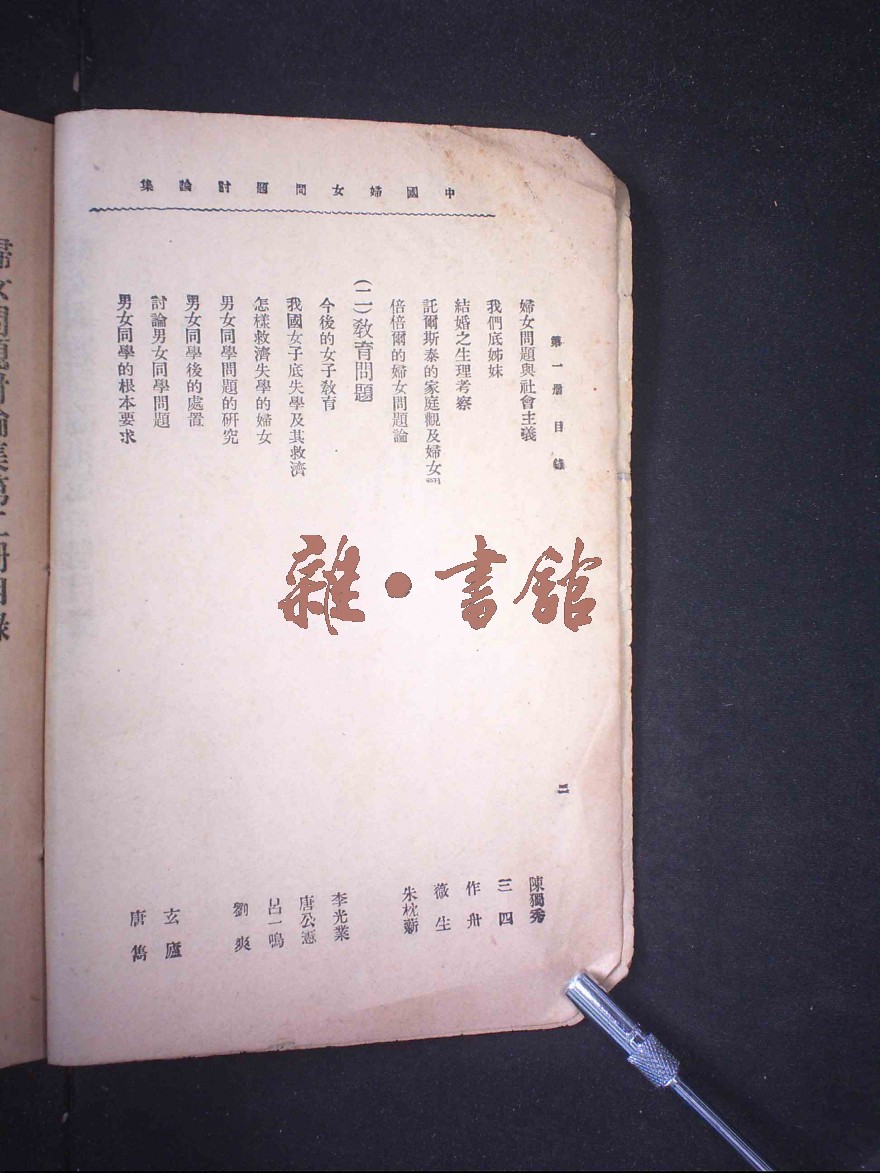 中國婦女問題討論集
第一册目錄
二
婦女問題與社會主義 陳獨秀
我們底姊妹 三四
結婚之生理考察 作舟
託爾斯泰的家庭觀及婦女 薇生
倍倍爾的婦女問題論 朱枕薪
(二)教育問題
今後的女子教育 李光業
我國女子底失學及其救濟 唐公憲
怎樣救濟失學的婦女 呂一鳴
男女同學問題的研究 劉爽
男女同學後的處置
討論男女同學問題 玄廬
男女同學的根本要求 唐雋
雜·書館
婦女問題討論集第二册目錄